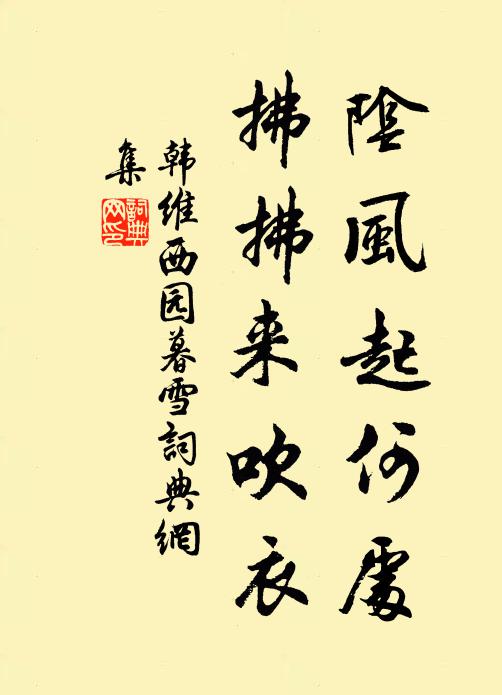 陰風起何處
拂拂来吹衣
韩维西园暮雪詞典網
集
詞典
网印